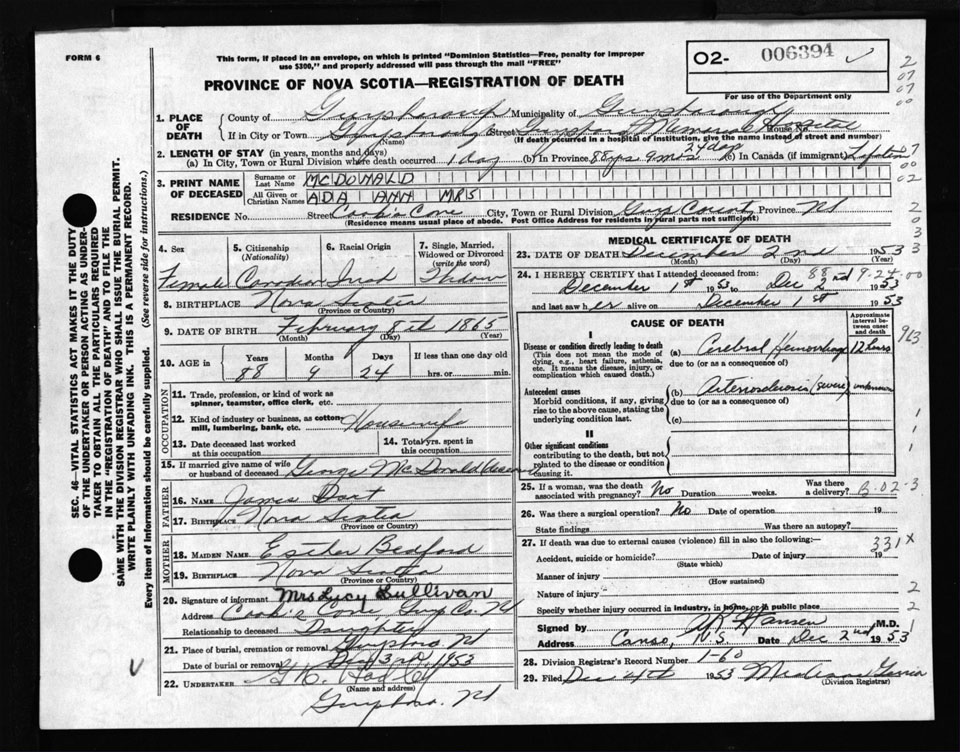 FORM 6
This form, if placed in an envelope, on which is printed "Dominion Statistics—Free, penalty for improper
use $300," and properly addressed will pass through the mail "FREE"
PROVINCE OF NOVA SCOTIA—REGISTRATION OF DEATH
O2- 006394
For use of the Department only
SEC. 46—VITAL STATISTICS ACT MAKES IT THE DUTY
OF THE UNDERTAKER OR PERSON ACTING AS UNDER-
TAKER TO OBTAIN ALL THE PARTICULARS REQUIRED
IN THE "REGISTRATION OF DEATH" AND TO FILE THE
SAME WITH THE DIVISION REGISTRAR WHO SHALL ISSUE THE BURIAL PERMIT.
WRITE PLAINLY WITH UNFADING INK. THIS IS A PERMANENT RECORD.
Every item of Information should be carefully supplied. (See reverse side for instructions.)
1. PLACE OF DEATH
County of Guysborough Municipality of Guysborough
If in City or Town Guysborough Street Memorial Hospital House No.
(Name) (If death occurred in a hospital of institution, give the name instead of street and number)
2. LENGTH OF STAY (in years, months and days)
(a) In City, Town or Rural Division where death occurred 1 day (b) In Province 88 yrs 9 mos 24 days (c) In Canada (if immigrant) Lifetime
3. PRINT NAME OF DECEASED
Surname or Last Name MCDONALD
All Given or Christian Names ADA ANN MRS
RESIDENCE No. Street Cook's Cove City, Town or Rural Division Guys County Province NS
(Residence means usual place of abode. Post Office Address for residents in rural parts not sufficient)
4. Sex Female
5. Citizenship (Nationality) Canadian
6. Racial Origin Irish
7. Single, Married, Widowed or Divorced (write the word) Widow
8. BIRTHPLACE Nova Scotia
(Province or Country)
9. DATE OF BIRTH February 8th 1865
(Month) (Day) (Year)
10. AGE in Years Months Days If less than one day old
88 9 24 hrs. or min.
OCCUPATION
11. Trade, profession, or kind of work as
spinner, teamster, office clerk, etc.
12. Kind of industry or business, as cotton-
mill, lumbering, bank, etc. Housewife
13. Date deceased last worked
at this occupation
14. Total yrs. spent in
this occupation
15. If married give name of wife
or husband of deceased George McDonald
FATHER
16. NAME James Dort
17. BIRTHPLACE Nova Scotia
(Province or Country)
MOTHER
18. MAIDEN NAME Esther Bedford
19. BIRTHPLACE Nova Scotia
(Province or Country)
20. Signature of informant Mrs Lucy Sullivan
Address Cook's Cove Guys Co. NS
Relationship to deceased Daughter
21. Place of burial, cremation or removal Guysboro. NS
Date of burial or removal Dec 3rd, 1953
22. UNDERTAKER
(Name and address)
Guysboro. NS
MEDICAL CERTIFICATE OF DEATH
23. DATE OF DEATH December 2nd 1953
(Month) (Day) (Year)
24. I HEREBY CERTIFY that I attended deceased from:
88 9-24-00
December 1st 1953 to Dec 2nd 1953
and last saw her alive on December 1st 1953
CAUSE OF DEATH
Approximate interval between onset and death
I
Disease or condition directly leading to death
(This does not mean the mode of
dying, e.g., heart failure, asthenia,
etc. It means the disease, injury, or
complication which caused death.)
(a) Cerebral Hemorrhage 12 hours
due to (or as a consequence of)
Antecedent causes
Morbid conditions, if any, giving
rise to the above cause, stating the
underlying condition last.
(b) Arteriosclerosis (severe) unknown
due to (or as a consequence of)
(c)
II
Other significant conditions
contributing to the death, but not
related to the disease or condition
causing it.
25. If a woman, was the death
associated with pregnancy? No Duration weeks. Was there a delivery? B-02-3
26. Was there a surgical operation? No Date of operation 19
State findings Was there an autopsy?
27. If death was due to external causes (violence) fill in also the following:— 331 x
Accident, suicide or homicide? Date of injury 19
(State which)
Manner of injury
(How sustained)
Nature of injury
Specify whether injury occurred in industry, in home, or in public place
Signed by Hansen M.D.
Address Canso, N.S. Date Dec 2nd 1953
28. Division Registrar's Record Number 1-60
29. Filed Dec 4th 1953
(Division Registrar)